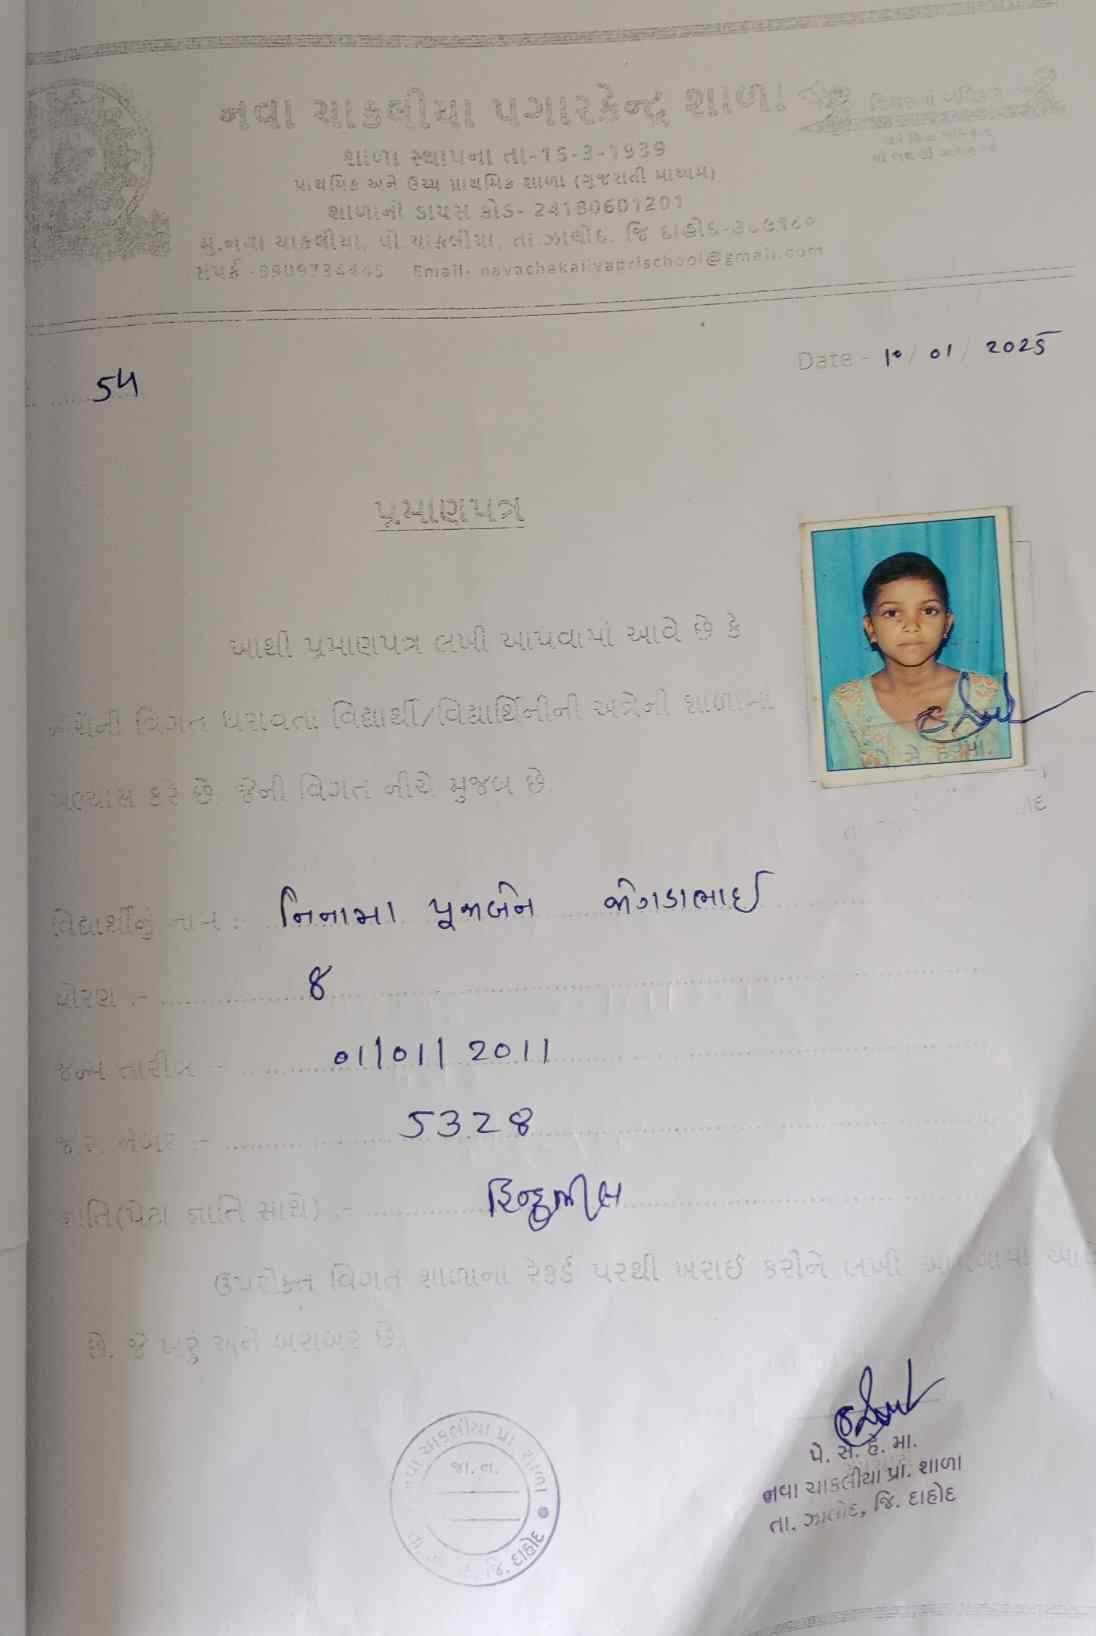 નવા ચાકલીયા પગારકેન્દ્ર શાળા
શાળા સ્થાપના તા-15-3-1939
પ્રાથમિક અને ઉચ્ચ પ્રાથમિક શાળા (ગુજરાતી માધ્યમ)
શાળાનો ડાયસ કોડ- 24180601201
મુ.નવા ચાકલીયા, પો ચાકલીયા, તા.ઝાલોદ. જિ દાહોદ-૩૮૯૧૮૦
સંપર્ક -9909734445 Email- navachakaliyaprischool@gmail.com
54
Date - 10/01/2025
પ્રમાણપત્ર
આથી પ્રમાણપત્ર લખી આપવામાં આવે છે કે
નીચેની વિગત ધરાવતા વિદ્યાર્થી/વિદ્યાર્થિનીની અત્રેની શાળામાં
અભ્યાસ કરે છે. જેની વિગત નીચે મુજબ છે.
પે. સે. હે. મા.
વિદ્યાર્થીનું નામ :- નિનામા પૂજાબેન જોગડાભાઈ
ધોરણ :- 8
જન્મ તારીખ :- 01/01/2011
જ.ર. નંબર :- 5328
જાતિ(પેટા જાતિ સાથે) :- હિન્દુ ભીલ
ઉપરોક્ત વિગત શાળાના રેકર્ડ પરથી ખરાઈ કરીને લખી આપવામાં આવે
છે. જે ખરું અને બરાબર છે.
નવા ચાકલીયા પ્રા. શાળા
જા. ન.
જિ. દાહોદ
પે. સે. હે. મા.
નવા ચાકલીયા પ્રા. શાળા
તા. ઝાલોદ, જિ. દાહોદ